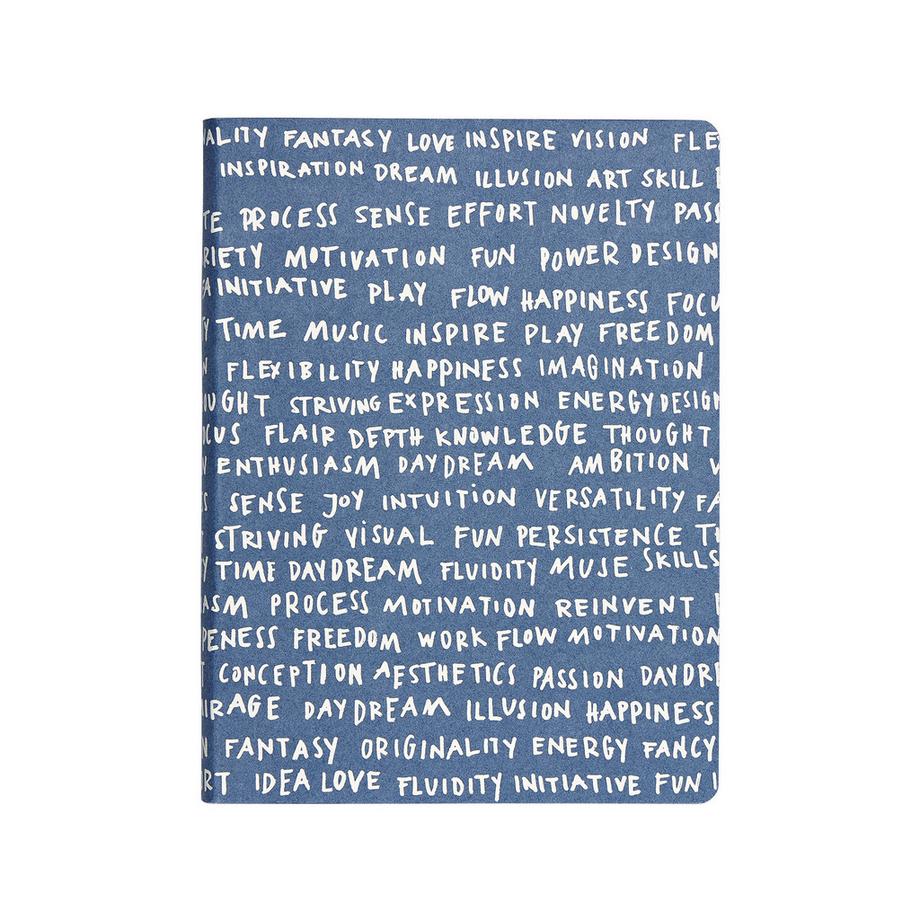 ALITY FANTASY LOVE INSPIRE VISION FLEX
INSPIRATION DREAM ILLUSION ART SKILL
TE PROCESS SENSE EFFORT NOVELTY PASS
RIETY MOTIVATION FUN POWER DESIGN
A INITIATIVE PLAY FLOW HAPPINESS FOCU
Y TIME MUSIC INSPIRE PLAY FREEDOM
N FLEXIBILITY HAPPINESS IMAGINATION
UGHT STRIVING EXPRESSION ENERGY DESIGN
CUS FLAIR DEPTH KNOWLEDGE THOUGHT
N ENTHUSIASM DAYDREAM AMBITION V
S SENSE JOY INTUITION VERSATILITY FA
STRIVING VISUAL FUN PERSISTENCE T
Y TIME DAYDREAM FLUIDITY MUSE SKILLS
ASM PROCESS MOTIVATION REINVENT
PENESS FREEDOM WORK FLOW MOTIVATION
T CONCEPTION AESTHETICS PASSION DAYDRE
URAGE DAYDREAM ILLUSION HAPPINESS
N FANTASY ORIGINALITY ENERGY FANCY
ART IDEA LOVE FLUIDITY INITIATIVE FUN I